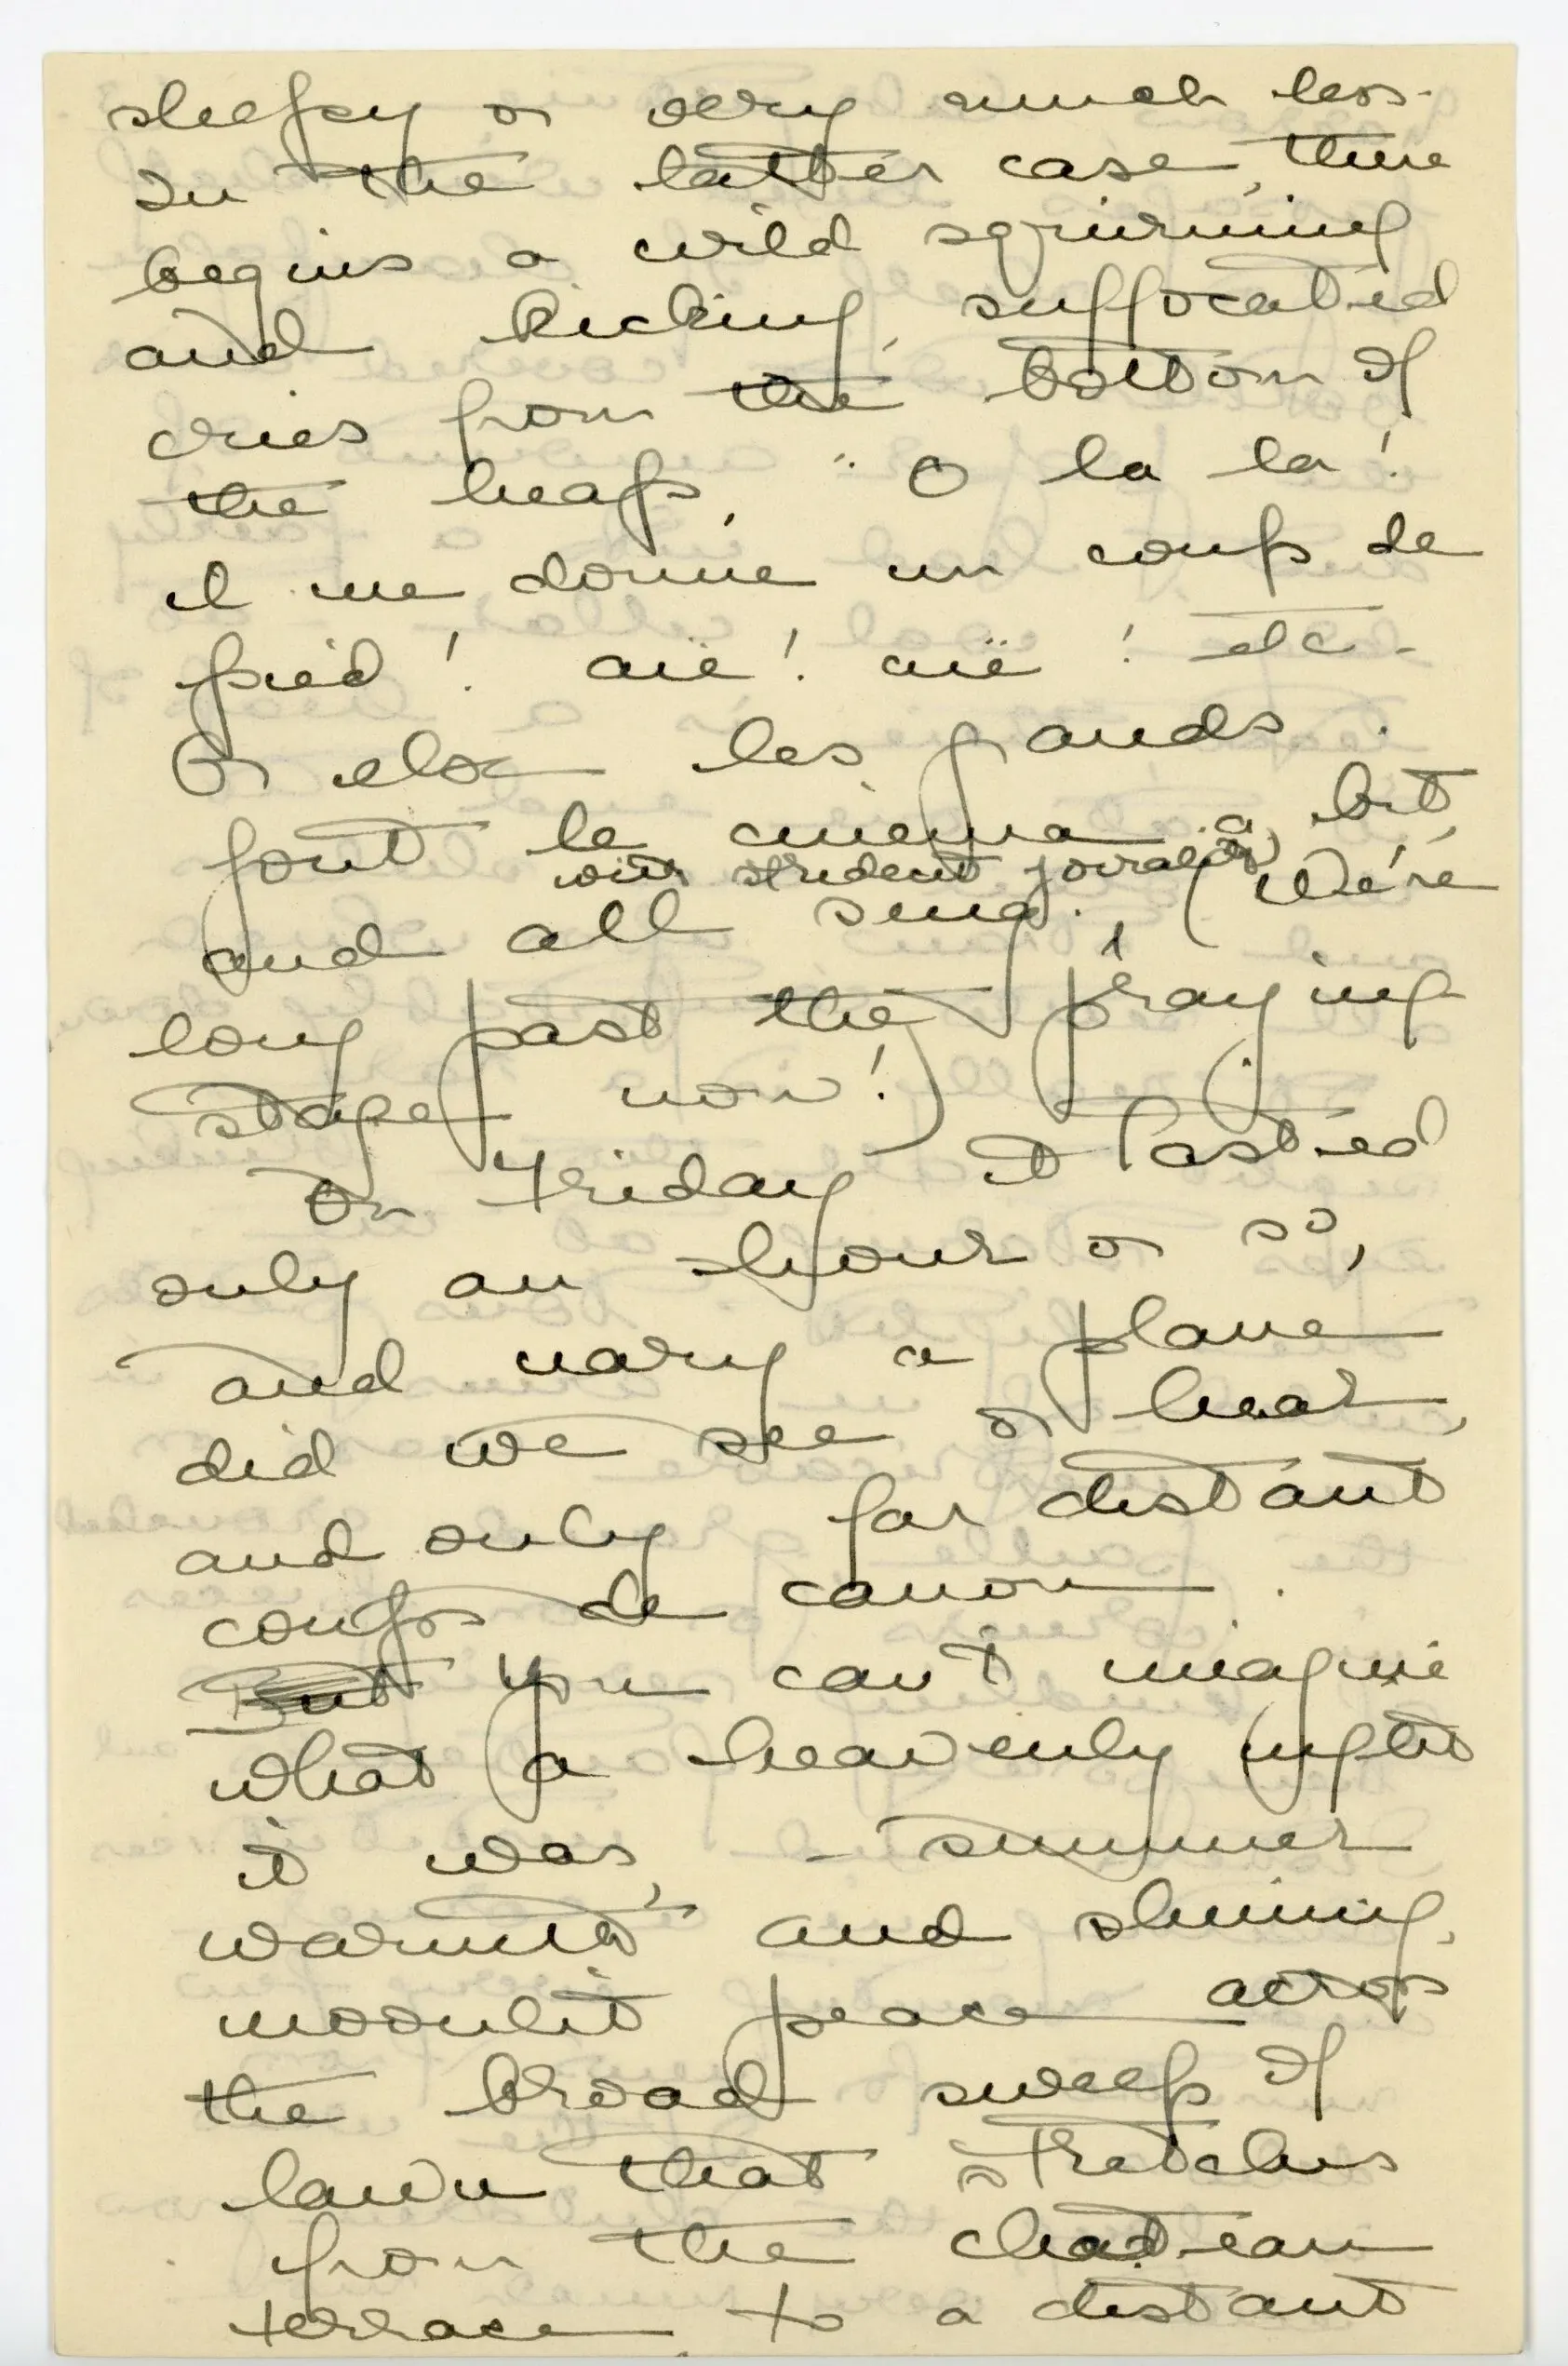 sleepy or very much less.
In the latter case, there
begins a wild squirming
and kicking, suffocated
cries from the bottom of
the heap, "O la la!
il me donne un coup de
pied! aïe! aïe! etc.
Or else les grands
font le cinema a bit
with strident jovial
and all sing. (We're
long past the praying
stage now!)
On Friday it lasted
only an hour or so,
and nary a plane
did we see or hear,
and only far distant
coups de canon.
But you can't imagine
what a heavenly night
it was, - summer
warmth and shining,
moonlit peace across
the broad sweep of
lawn that stretches
from the chateau
terrace to a distant